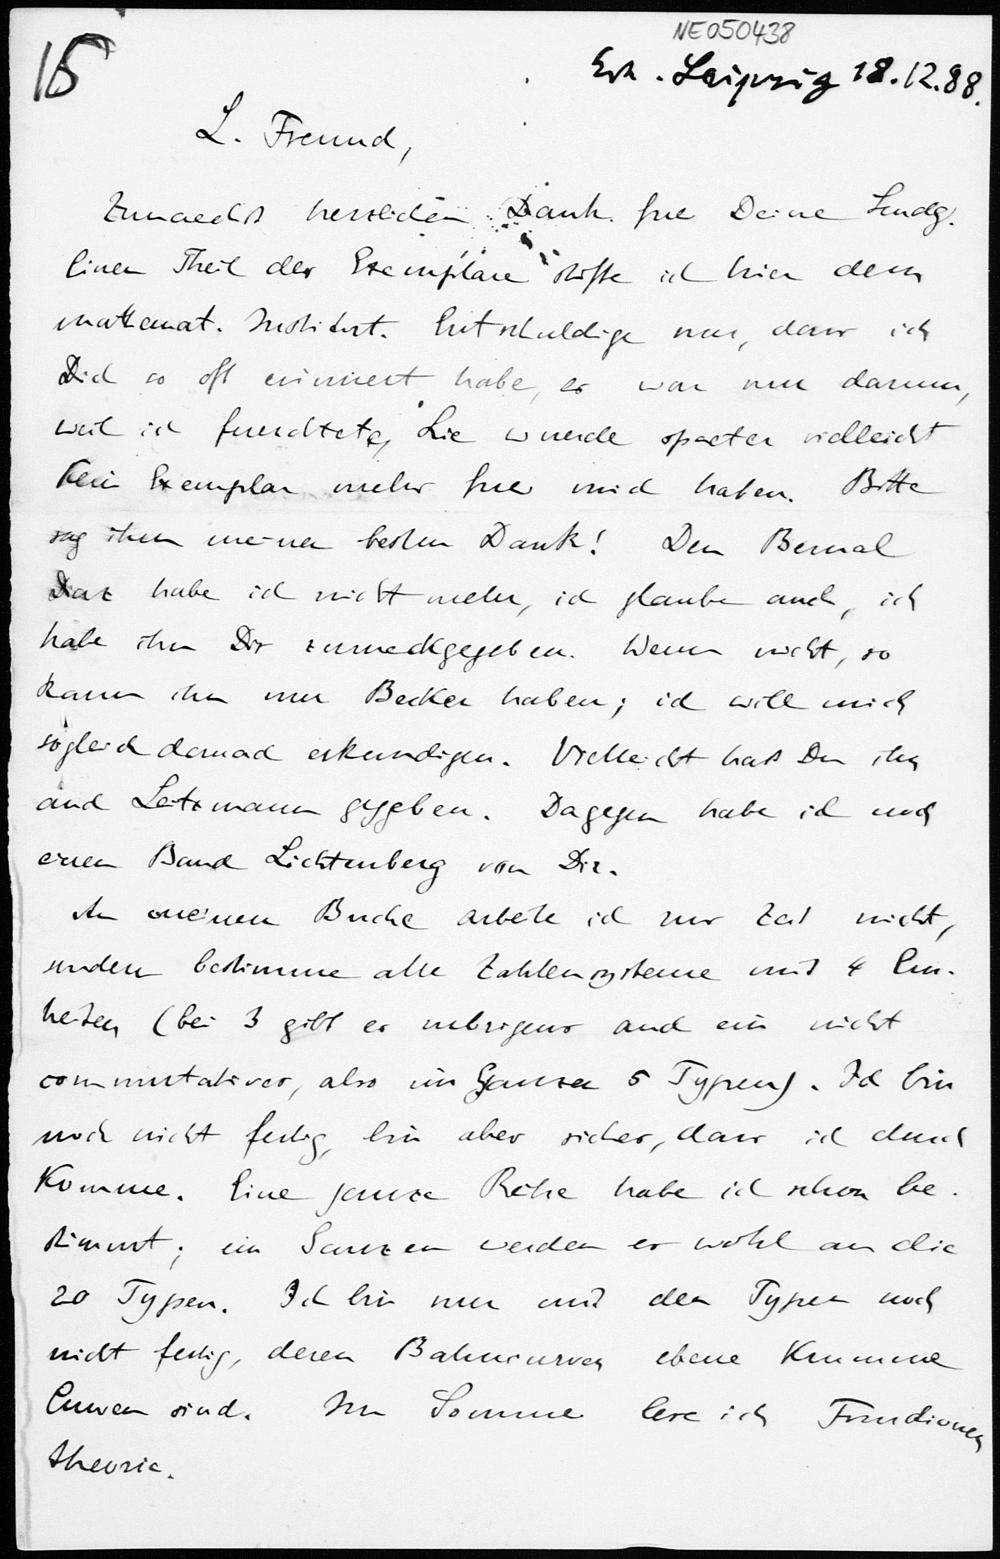 NE050438
15
Erh. Leipzig 18.12.88.
L. Freund,
Zunaechst herzlichen Dank fue Deine Sendg.
Einen Theil der Exemplare stifte ich hier dem
mathemat. Institut. Entschuldige nur, dass ich
Dich so oft erinnert habe, es war nur darum,
weil ich fuerchtete, Lie wuerde spaeter vielleicht
kein Exemplar mehr fuer mich haben. Bitte
sag ihm meinen besten Dank! Den Bernal
Diaz habe ich nicht mehr, ich glaube auch, ich
habe ihn Dir zurueckgegeben. Wenn nicht, so
kann ihn nur Becker haben; ich will mich
sogleich darnach erkundigen. Vielleicht hast Du ihn
auch Leitzmann gegeben. Dagegen habe ich noch
einen Band Lichtenberg von Dir.
An meinem Buche arbeite ich zur Zeit nicht,
sondern bestimme alle Zahlensysteme mit 4 Ein-
heiten (bei 3 gibt es uebrigens auch ein nicht
commutatives, also im Ganzen 5 Typen). Ich bin
noch nicht fertig, bin aber sicher, dass ich durch
komme. Eine ganze Reihe habe ich schon be-
stimmt; im Ganzen werden es wohl an die
20 Typen. Ich bin nur mit den Typen noch
nicht fertig, deren Bahncurven ebene krumme
Curven sind. Im Sommer lese ich Functionen
theorie.